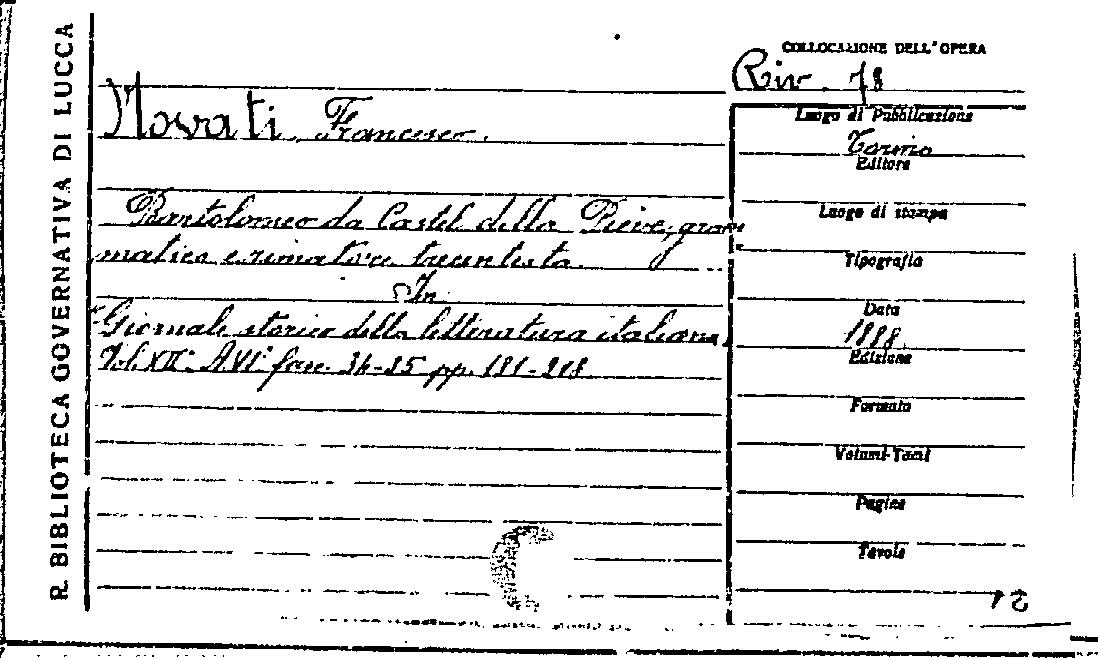 R. BIBLIOTECA GOVERNATIVA DI LUCCA
COLLOCAZIONE DELL'OPERA
Riv. 78
Novati Francesco.
Bartolomeo da Castel della Pieve, gram
matico e rimatore trecentista.
In
"Giornale storico della letteratura italiana
Vol. XII° A. VI° fasc. 34-35 pp. 181-218
Luogo di Pubblicazione
Torino
Editore
Luogo di stampa
Tipografia
Data
1888
Edizione
Formato
Volumi-Tomi
Pagine
Tavole